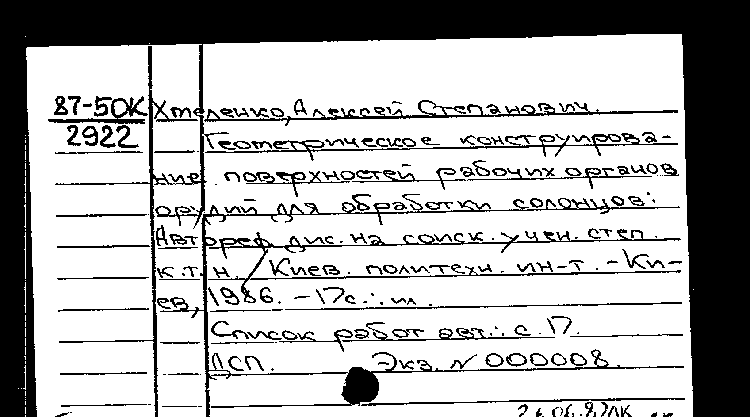 87-5ОК Хмеленко, Алексей Степанович.
2922 Геометрическое конструирова-
ние поверхностей рабочих органов
орудий для обработки солонцов:
Автореф. дис. на соиск. учен. степ.
к.т.н. / Киев. политехн. ин-т. - Ки-
ев, 1986. - 17 с.: ил.
Список работ авт.: с. 17.
ДСП. Экз. N 000008.